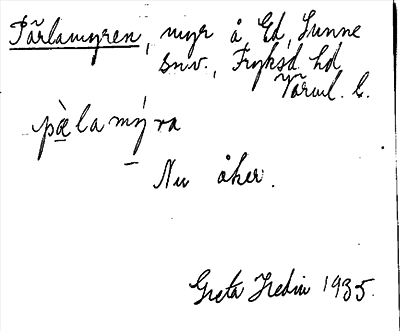 Pärlamyren, myr å Ed, Sunne
snv., Fryksd. hd
Värml. l.
pæ̀lamýra
Nu åker.
Greta Hedin 1935.